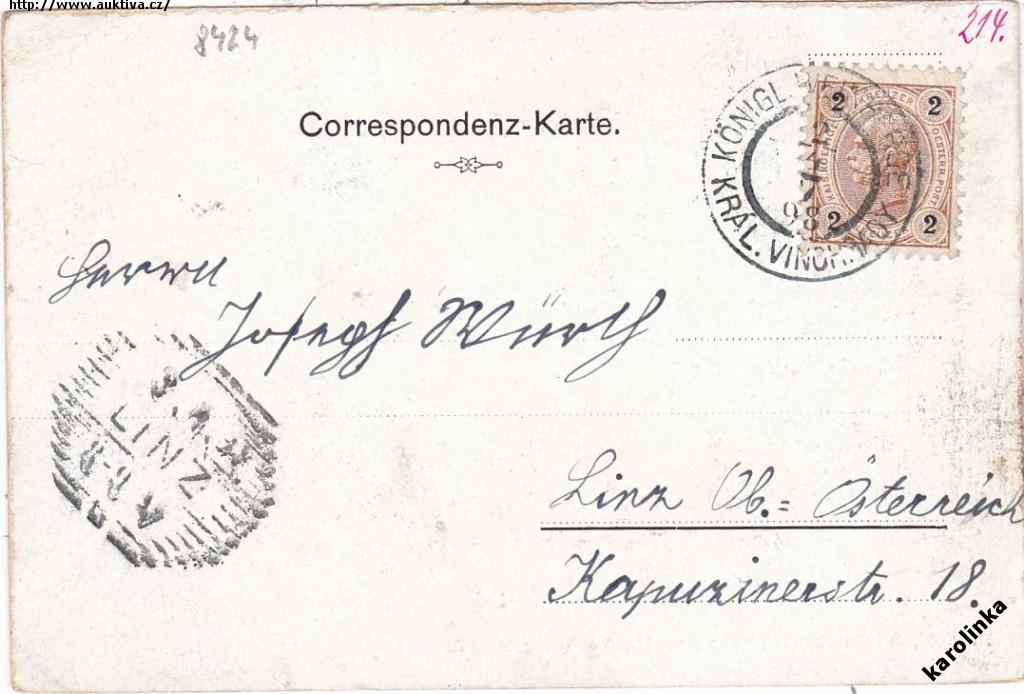 http://www.auktiva.cz/
8424
214.
Correspondenz-Karte.
KÖNIGL.
KRÁL. VINOHRADY
98
2 KREUZER 2
KAIS. KÖNIGL. OESTERR. POST
2 2
Herrn
Joseph Würth
LINZ
Linz Ob.= Österreich
Kapuzinerstr. 18.
karolinka